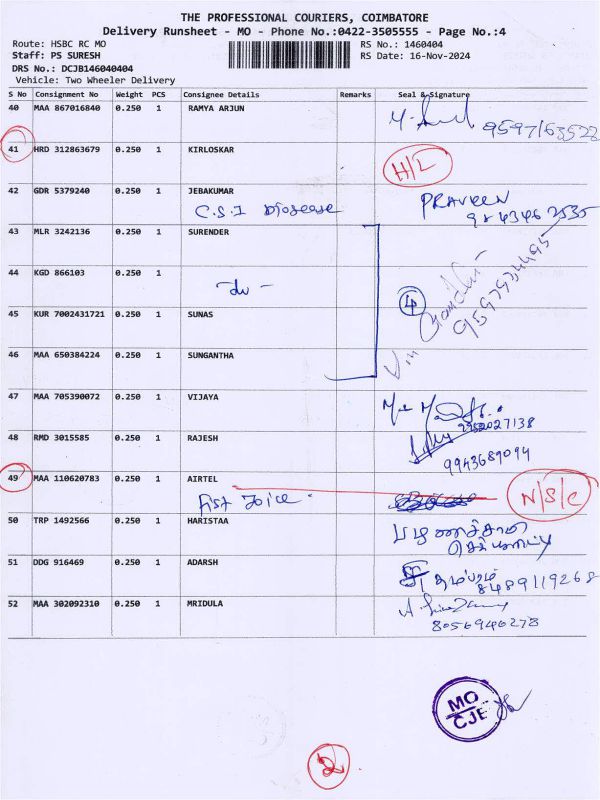 THE PROFESSIONAL COURIERS, COIMBATORE
Delivery Runsheet - MO - Phone No.:0422-3505555 - Page No.:4
Route: HSBC RC MO
RS No.: 1460404
Staff: PS SURESH
RS Date: 16-Nov-2024
DRS No.: DCJB146040404
Vehicle: Two Wheeler Delivery
S No Consignment No Weight PCS Consignee Details Remarks Seal & Signature
40 MAA 867016840 0.250 1 RAMYA ARJUN
9597163522
41 HRD 312863679 0.250 1 KIRLOSKAR H/L
42 GDR 5379240 0.250 1 JEBAKUMAR PRAVEEN
C.S.I
43 MLR 3242136 0.250 1 SURENDER
44 KGD 866103 0.250 1
4
45 KUR 7002431721 0.250 1 SUNAS
46 MAA 650384224 0.250 1 SUNGANTHA
47 MAA 705390072 0.250 1 VIJAYA
9952027138
48 RMD 3015585 0.250 1 RAJESH
9943689094
49 MAA 110620783 0.250 1 AIRTEL N/S/C
50 TRP 1492566 0.250 1 HARISTAA
51 DDG 916469 0.250 1 ADARSH
8489119268
52 MAA 302092310 0.250 1 MRIDULA
8056946278
MO
CJB
2